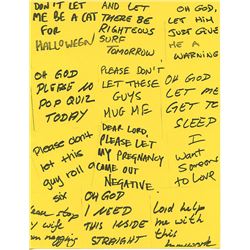 DON'T LET
ME BE A CAT
FOR
HALLOWEEN
AND LET
THERE BE
RIGHTEOUS
SURF
TOMORROW
OH GOD,
LET HIM
JUST GIVE
ME A
WARNING
OH GOD
PLEASE NO
POP QUIZ
TODAY
PLEASE DON'T
LET THESE
GUYS
MUG ME
OH GOD
LET ME
GET TO
SLEED
Please dont
let this
guy roll a
six
DEAR LORD,
PLEASE LET
MY PREGNANCY
COME OUT
NEGATIVE.
I
Want
Someone
to Love
please stop
my wife
from nagging
OH GOD
I NEED
THIS INSIDE
STRAIGHT
Lord help
me with
this
homework